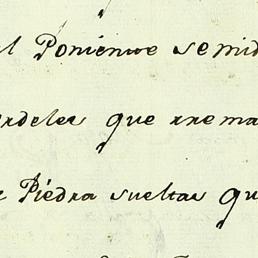 l Poniente se mid
ordeles que rrema
s Piedra sueltas qu